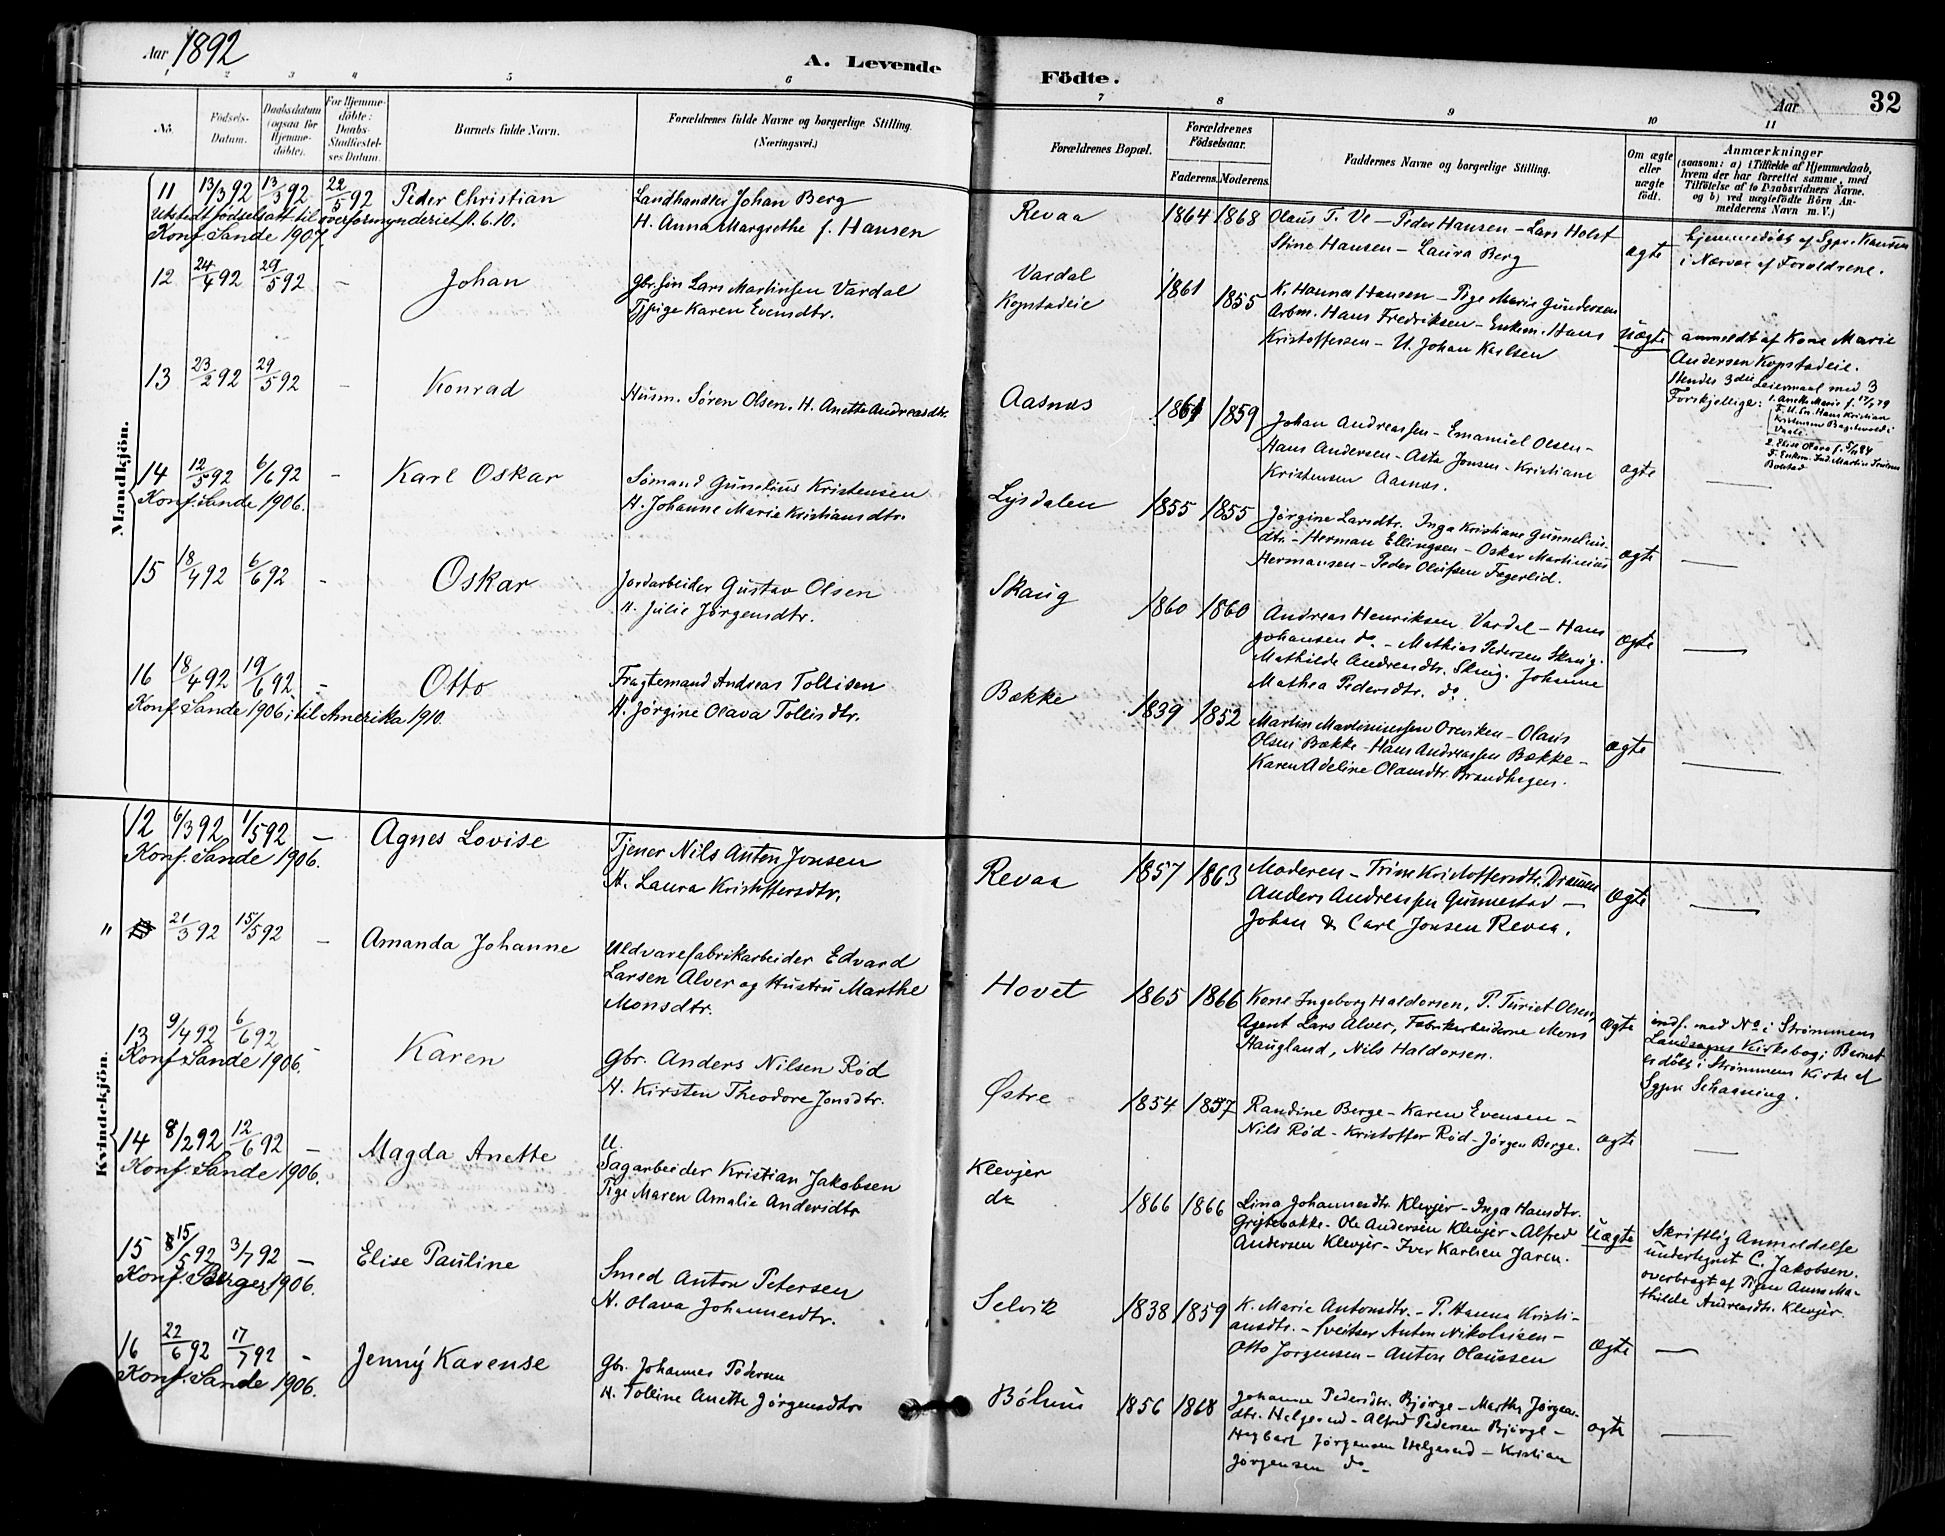 Aar 1892
A. Levende
Fødte.
Aar
32
1 2 3 4 5 6
7 8 9 10 11
No.
Fødsels-
Datum.
Daabsdatum
(ogsaa for
Hjemme-
døbte).
For Hjemme-
døbte:
Daabs-
Stadfæstel-
ses Datum.
Barnets fulde Navn.
Forældrenes fulde Navne og borgerlige Stilling.
(Næringsvei.)
Forældrenes Bopæl.
Forældrenes
Fødselsaar.
Faderens.
Moderens.
Faddernes Navne og borgerlige Stilling.
Om ægte
eller
uægte
født.
Anmærkninger
(saasom: a) i Tilfælde af Hjemmedaab,
hvem der har forrettet samme, med
Tilføielse af to Daabsvidners Navne,
og b) ved uægtefødte Børn An-
melderens Navn m. V.)
Mandkjøn.
11 13/3 92 13/3 92 22/5 92 Peder Christian
Utstedt fødselsatt til overformynderiet 11.6.10.
Konf. Sande 1907.
Landhandler Johan Berg
H. Anna Margrethe f. Hansen
Revaa 1864 1868
Olaus T. Ve – Peder Hansen – Lars Holst
Stine Hansen – Laura Berg
ægte
hjemmedøbt af Sgpr. Hansen
i Nærvær af Forældrene.
12 24/4 92 29/5 92 – Johan
Gbr.søn Lars Martinsen Vardal
Tjpige Karen Evensdtr.
Vardal
Kopstadeie
1861 1855
K. Hanna Hansen – Pige Marie Gundersen
Arbm. Hans Fredriksen – Enkem. Hans
Kristoffersen – U. Johan Karlsen
Uægte
anmeldt af Kone Marie
Andersen Kopstadeie.
Hendes 3die Leiermaal med 3
Forskjellige: 1. Anette Marie f. 17/ 79
F. U. Hans Kristian
Kristensen
2. Elise Olava f. 84
F. Enkm. Ind. Martin
Bolstad
13 23/2 92 29/5 92 – Konrad
Husm. Søren Olsen. H. Anette Andreasdtr.
Aasnæs 1861 1859
Johan Andreassen – Emanuel Olsen –
Hans Andersen – Asta Jonsen – Kristiane
Kristensen Aasnæs.
ægte
14 12/5 92 6/6 92 – Karl Oskar
Konf. Sande 1906.
Sømand Gunelius Kristensen
H. Johanne Marie Kristiansdtr.
Lysdalen 1855 1855
Jørgine Larsdtr. Inga Kristiane Gunnelius-
dtr. – Herman Ellingsen – Oskar Martinius
Hermansen – Peder Olufsen Fagerlid.
ægte
15 18/4 92 6/6 92 – Oskar
Jordarbeider Gustav Olsen
H. Julie Jørgensdtr.
Skaug 1860 1860
Andreas Henriksen Vardal – Hans
Johansen do. – Mathias Pedersen Skaug.
Mathilde Andreasdtr. Skaug. Johanne
Mathea Pedersdtr. do.
ægte
16 18/4 92 19/6 92 – Otto
Konf. Sande 1906; til Amerika 1910.
Fragtemand Andreas Tollisen
H. Jørgine Olava Tollisdtr.
Bække 1839 1852
Martin Martiniussen Orviken – Olaus
Olsen Bække – Hans Andreassen Bække –
Karen Adeline Olausdtr. Brandhagen.
ægte
Kvindekjøn.
12 6/3 92 1/5 92 – Agnes Lovise
Konf. Sande 1906.
Tjener Nils Anton Jonsen
H. Laura Kristoffersdtr.
Revaa 1857 1863
Moderen – Trine Kristoffersdtr. Drammen
Anders Andreassen Gunnestad –
Johan & Carl Jonsen Revaa.
ægte
" 21/3 92 15/5 92 – Amanda Johanne
Uldvarefabrikarbeider Edvard
Larsen Alver og Hustru Marthe
Monsdtr.
Hovet 1865 1866
Kone Ingeborg Haldorsen, P. Turiet Olsen,
Agent Lars Alver, Fabrikarbeiderne Mons
Haugland, Nils Haldorsen.
ægte
indf. med No. i Strømmens
Landsogns Kirkebog; Barnet
er døbt i Strømmens Kirke af
Sgpr. Schaaning.
13 9/4 92 6/6 92 – Karen
Konf. Sande 1906.
Gbr. Anders Nilsen Rød
H. Kirsten Theodore Jonsdtr.
Østre 1854 1857
Randine Berge – Karen Evensen –
Nils Rød – Kristoffer Rød – Jørgen Berge.
ægte
14 8/2 92 12/6 92 – Magda Anette
Konf. Sande 1906.
U.
Sagarbeider Kristian Jakobsen
Pige Maren Amalie Andersdtr.
Klevjer
do.
1866 1866
Lina Johannesdtr. Klevjer – Inga Hansdtr.
Grytebakke – Ole Andersen Klevjer – Alfred
Andersen Klevjer – Iver Karlsen Jaren.
Uægte
Skriftlig Anmeldelse
undertegnet C. Jakobsen.
overbragt af Pigen Anna Ma-
thilde Andreasdtr. Klevjer.
15 15/5 92 3/7 92 – Elise Pauline
Konf. Berger 1906.
Smed Anton Petersen
H. Olava Johannesdtr.
Selvik 1838 1859
K. Marie Antonsdtr. – P. Hanna Kristi-
ansdtr. – Sveitser Anton Nikolaisen –
Otto Jørgensen – Anton Olaussen
ægte
16 22/6 92 17/7 92 – Jenny Karense
Konf. Sande 1906.
Gbr. Johannes Pedersen
H. Tolline Anette Jørgensdtr.
Bølum 1856 1868
Johanne Pedersdtr. Bjørge – Marthe Jørgens-
dtr. Helgerud – Alfred Pedersen Bjørge –
Hagbart Jørgensen Helgerud – Kristian
Jørgensen do.
ægte